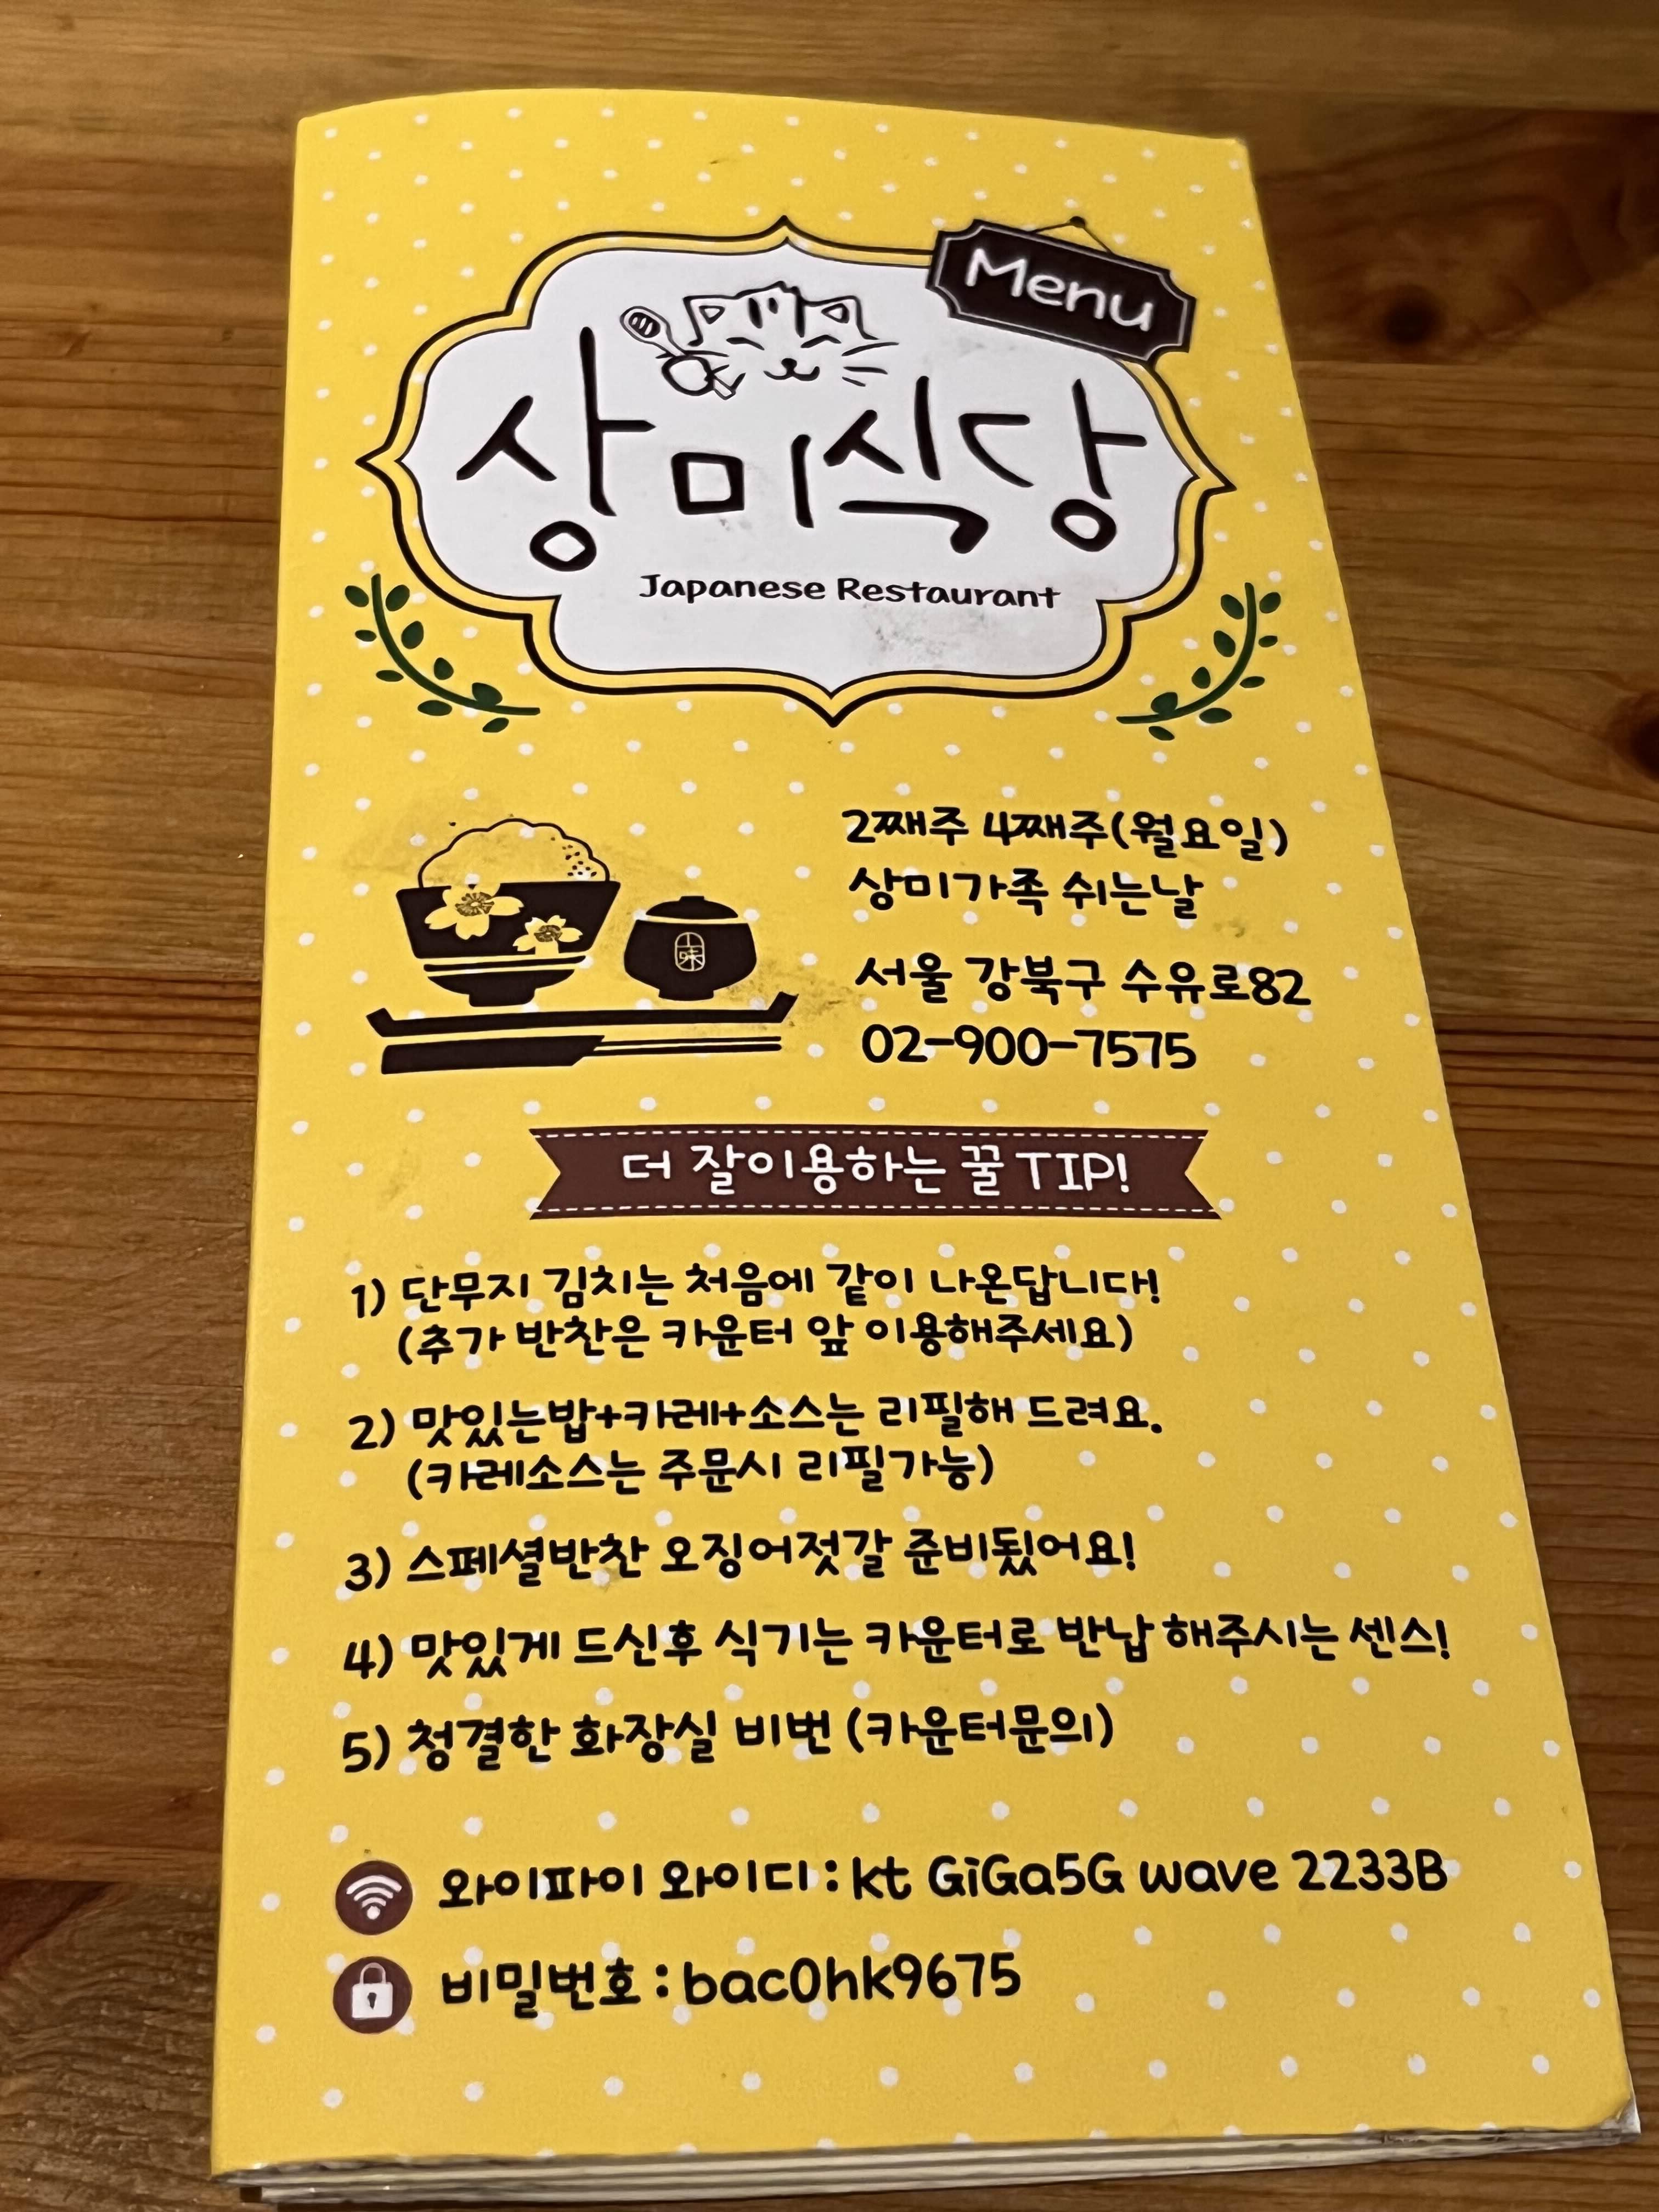 Menu
상미식당
Japanese Restaurant
2째주 4째주(월요일)
상미가족 쉬는날
서울 강북구 수유로82
02-900-7575
上味
더 잘이용하는 꿀 TIP!
1) 단무지 김치는 처음에 같이 나온답니다!
(추가 반찬은 카운터 앞 이용해주세요)
2) 맛있는밥+카레+소스는 리필해 드려요.
(카레소스는 주문시 리필가능)
3) 스페셜반찬 오징어젓갈 준비됬어요!
4) 맛있게 드신후 식기는 카운터로 반납 해주시는 센스!
5) 청결한 화장실 비번 (카운터문의)
와이파이 와이디 : kt GiGa5G wave 2233B
비밀번호 : bac0hk9675